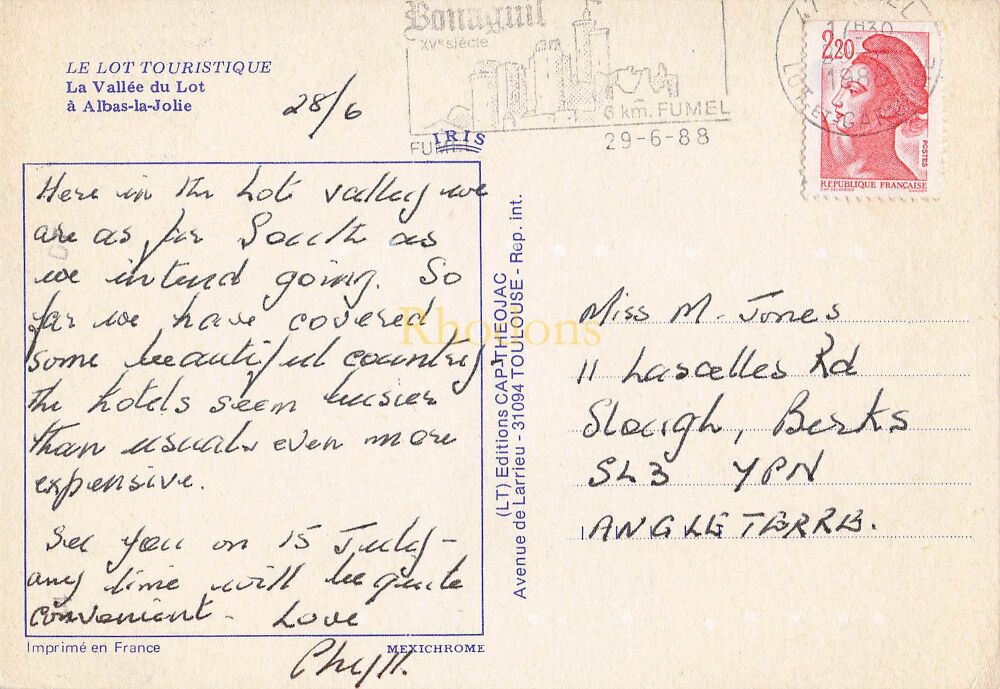 Bonaguil
XVe siècle
6 km. FUMEL
FUMEL
29-6-88
17H30
LOT-ET-GARONNE
2,20
POSTES
REPUBLIQUE FRANÇAISE
LE LOT TOURISTIQUE
La Vallée du Lot
à Albas-la-Jolie
28/6
IRIS
Here in the Lot valley we
are as far South as
we intend going. So
far we have covered
some beautiful country
the hotels seem busier
than usual & even more
expensive.
See you on 15 July -
any time will be quite
convenient - Love
Phyll.
Imprimé en France
MEXICHROME
(LT) Editions CAP-THEOJAC
Avenue de Larrieu - 31094 TOULOUSE - Rep. int.
Rhodons
Miss M. Jones
11 Lascelles Rd
Slough, Berks
SL3 7PN
ANGLETERRE.